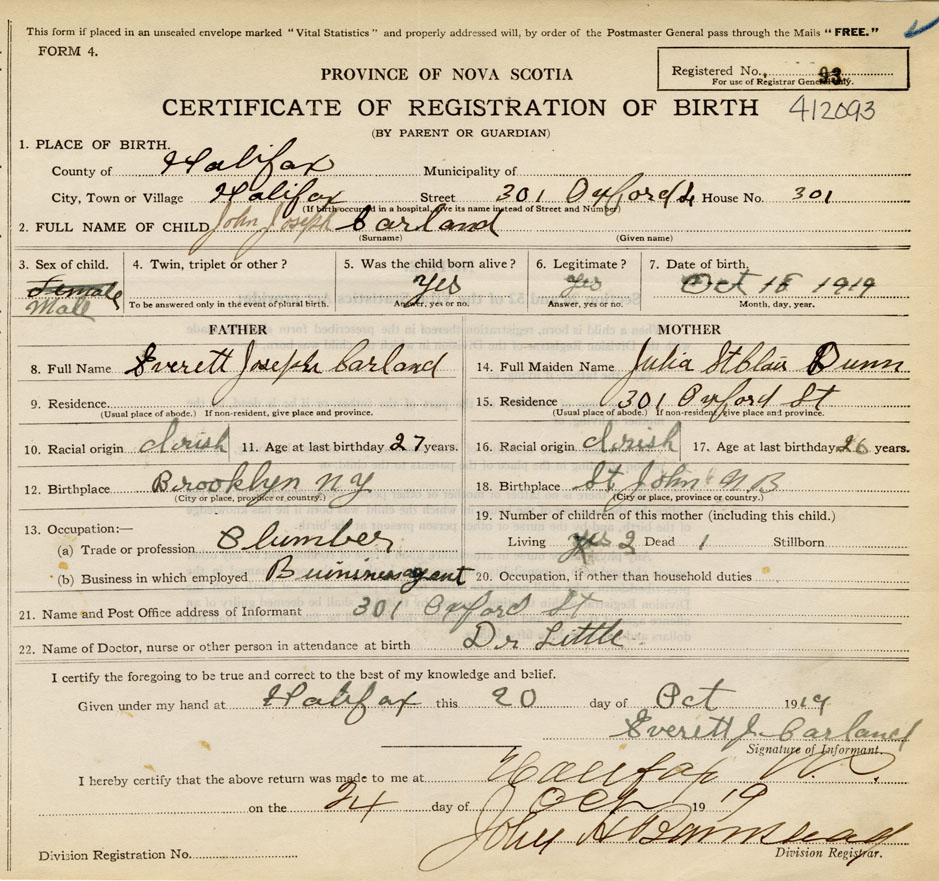 This form if placed in an unsealed envelope marked "Vital Statistics" and properly addressed will, by order of the Postmaster General pass through the Mails "FREE."
FORM 4.
Registered No. 93
For use of Registrar General only.
PROVINCE OF NOVA SCOTIA
CERTIFICATE OF REGISTRATION OF BIRTH 412093
(BY PARENT OR GUARDIAN)
1. PLACE OF BIRTH.
County of Halifax Municipality of
City, Town or Village Halifax Street 301 Oxford St House No. 301
(If birth occurred in a hospital, give its name instead of Street and Number)
2. FULL NAME OF CHILD John Joseph Carland
(Surname) (Given name)
3. Sex of child. 4. Twin, triplet or other? 5. Was the child born alive? 6. Legitimate? 7. Date of birth.
Female Yes Yes Oct 18 1919
Male To be answered only in the event of plural birth. Answer, yes or no. Answer, yes or no. Month, day, year.
FATHER MOTHER
8. Full Name Everett Joseph Carland 14. Full Maiden Name Julia St Clair Dunn
9. Residence. 15. Residence 301 Oxford St
(Usual place of abode.) If non-resident, give place and province. (Usual place of abode.) If non-resident, give place and province.
10. Racial origin Irish 11. Age at last birthday 27 years. 16. Racial origin Irish 17. Age at last birthday 26 years.
12. Birthplace Brooklyn NY 18. Birthplace St John NB
(City or place, province or country.) (City or place, province or country.)
13. Occupation:— 19. Number of children of this mother (including this child.)
(a) Trade or profession Plumber Living yes 2 Dead 1 Stillborn
(b) Business in which employed Business agent 20. Occupation, if other than household duties
21. Name and Post Office address of Informant 301 Oxford St
22. Name of Doctor, nurse or other person in attendance at birth Dr Little
I certify the foregoing to be true and correct to the best of my knowledge and belief.
Given under my hand at Halifax this 20 day of Oct 1919
Everett J. Carland
Signature of Informant.
I hereby certify that the above return was made to me at Halifax
on the 24 day of Oct 1919
John A
Division Registration No. Division Registrar.